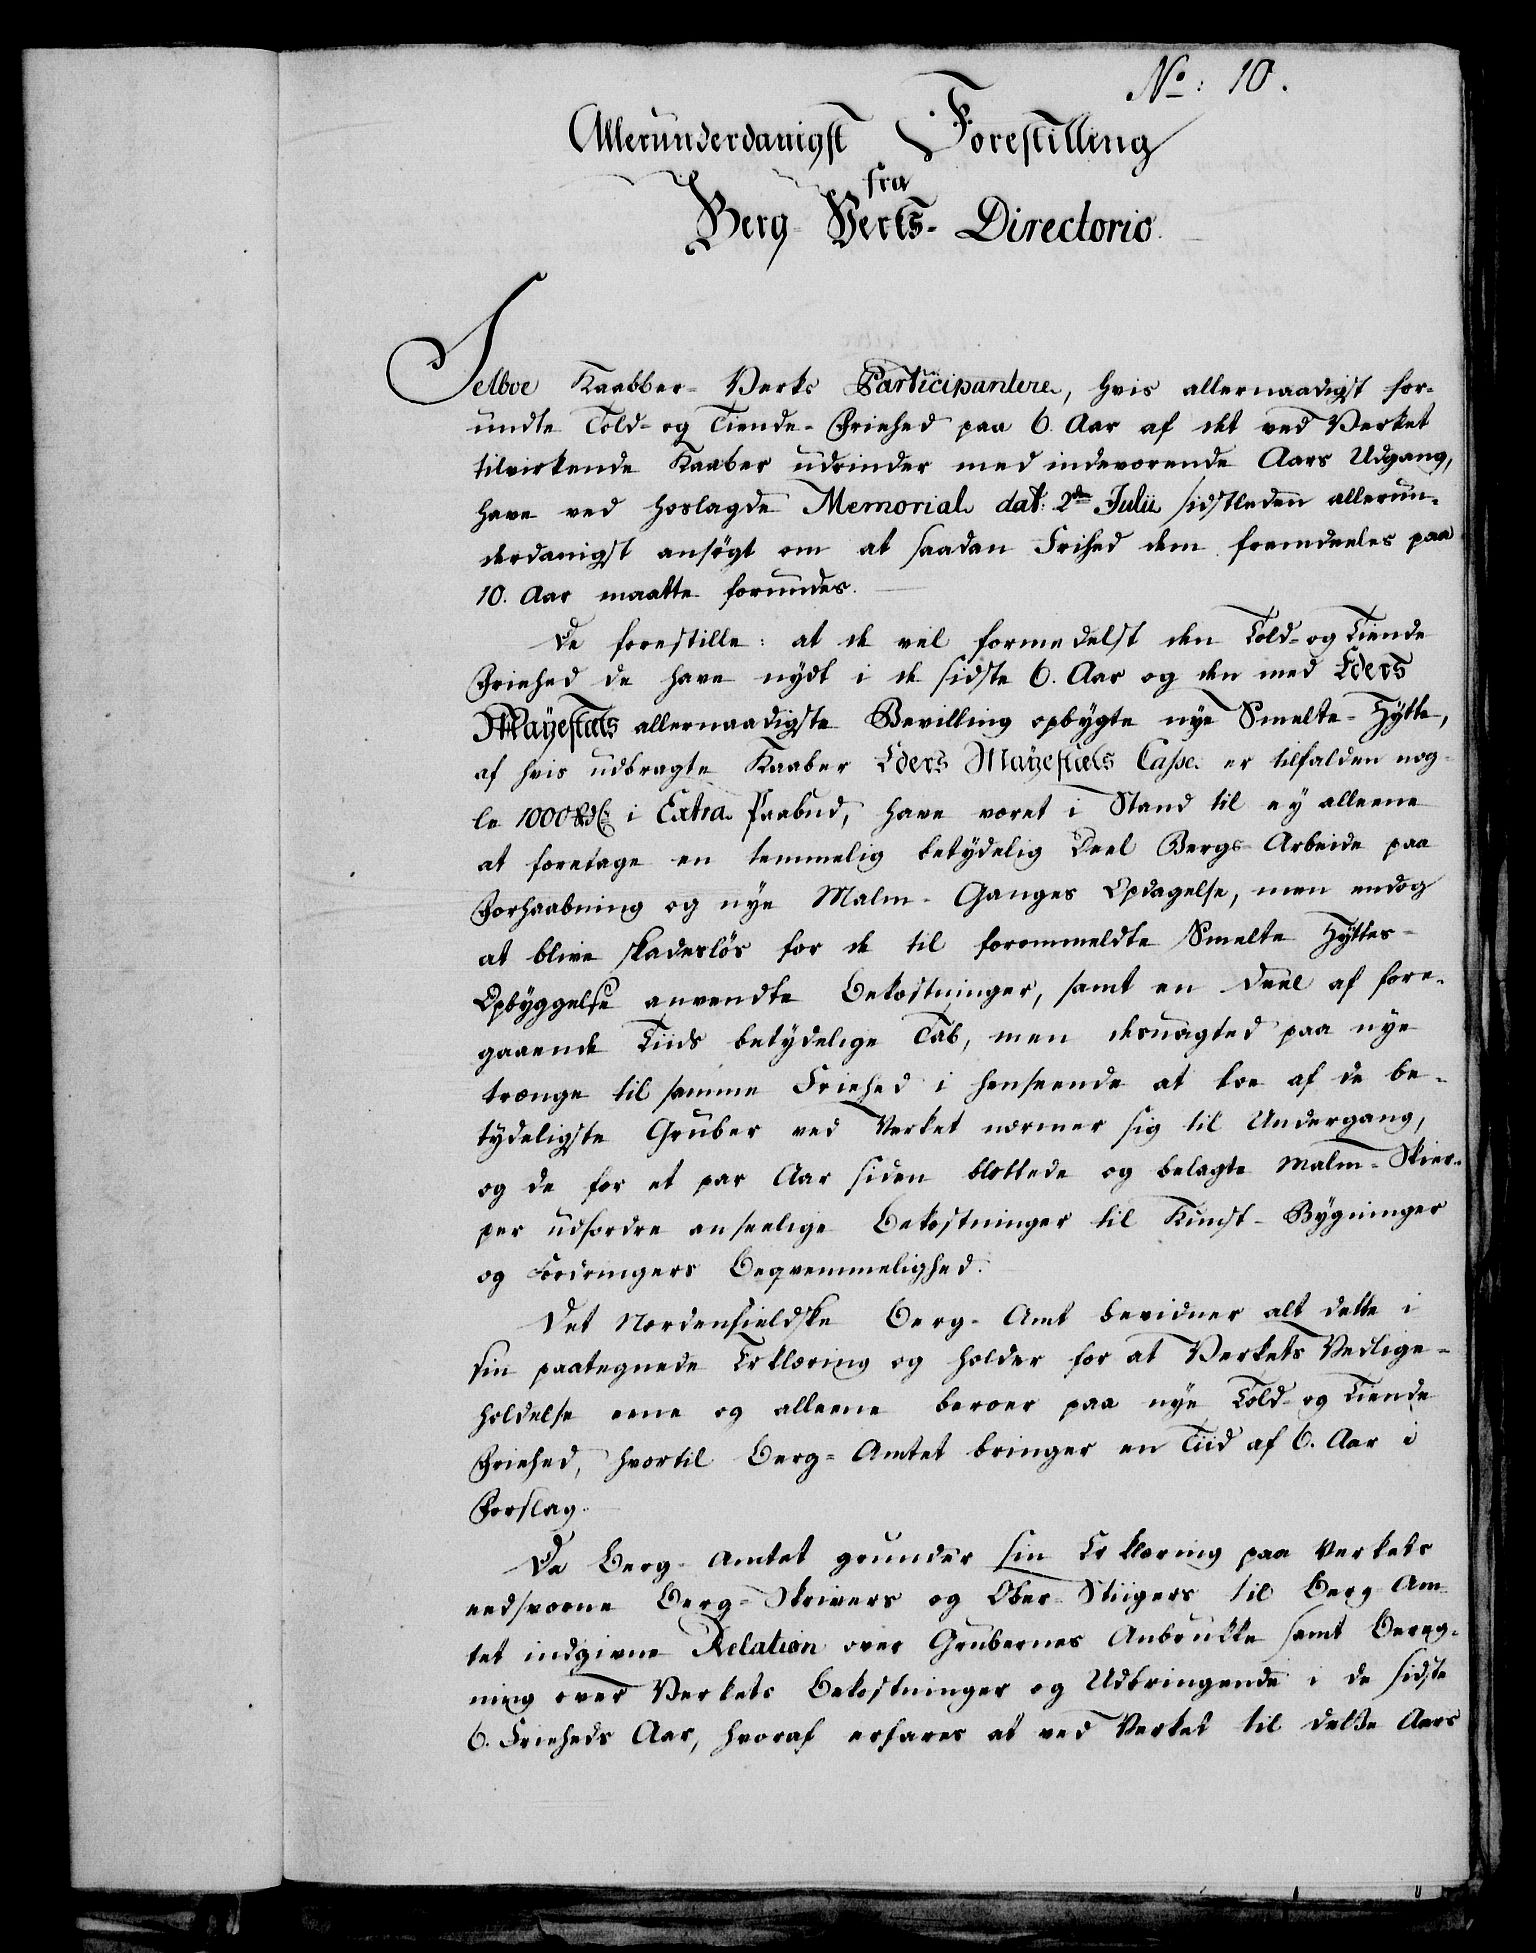 No: 10.
Allerunderdanigst Forestilling
fra
Berg-Verks-Directorio.
Selboe Kaabber-Verks Participantere, hvis allernaadigst for-
undte Told- og Tiende-Friehed paa 6. Aar af det ved Verket
tilvirkende Kaaber udrinder med indeværende Aars Udgang,
have ved hoslagde Memorial dat: 2de Julii sidstleden allerun-
derdanigst ansøgt om at saadan Frihed dem fremdeeles paa
10. Aar maatte forundes.
De forestille: at de vel formedelst den Told- og Tiende
Friehed de have nydt i de sidste 6. Aar og den med Eders
Mayestæts allernaadigste Bevilling opbygte nye Smelte-Hytte,
af hvis udbragte Kaaber Eders Mayestæts Casse er tilfalden nog-
le 1000 Rdlr i Extra Paabud, have været i Stand til ey alleene
at foretage en temmelig betydelig Deel Bergs-Arbeide paa
Forhaabning og nye Malm-Ganges Opdagelse, men endog
at blive skadesløs for de til forommeldte Smelte Hyttes-
Opbyggelse anvendte Bekostninger, samt en Deel af fore-
gaaende Tiids betydelige Tab, men desuagted paa nye
trænge til samme Friehed i henseende at toe af de be-
tydeligste Gruber ved Verket nærmer sig til Undergang,
og de for et par Aar siden blottede og belagte Malm-Skier-
per udfordre anseelige Bekostninger til Kunst-Bygninger
og Fordringers Beqvemmelighed.
Det Nordenfieldske Berg-Amt bevidner alt dette i
sin paategnede Erklæring og holder for at Verkets Vedlige-
holdelse eene og alleene beroer paa nye Told- og Tiende
Friehed, hvortil Berg-Amtet bringer en Tiid af 6. Aar i
Forslag.
Da Berg-Amtet grunder sin Erklæring paa Verkets
eedsvorne Berg-Skrivers og Ober-Stiigers til Berg-Am-
tet indgivne Relation over Grubernes Anbrukke samt Bereg-
ning over Verkets Bekostninger og Udbringende i de sidste
6. Frieheds Aar, hvoraf erfares at ved Verket til delße Aars